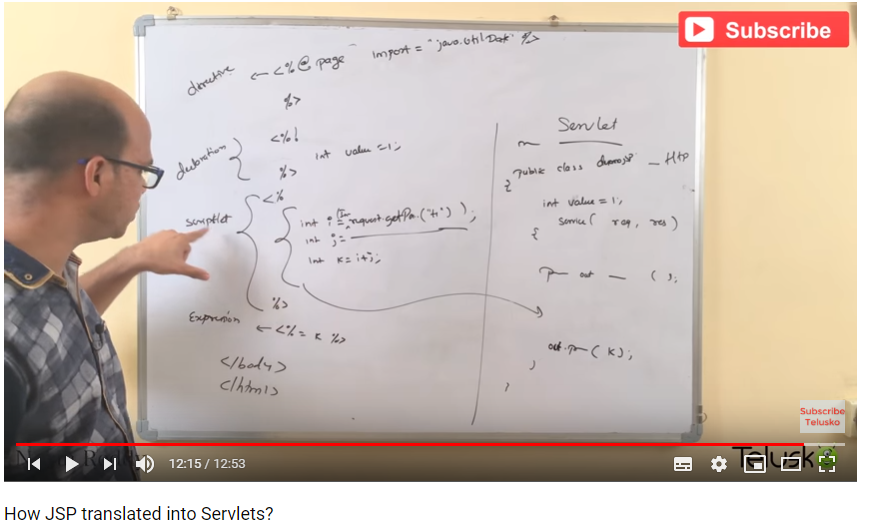 Subscribe
directive ← <%@ page import = "java.util.Date" %>
%>
declaration <%!
int value = 1;
%>
scriptlet <%
int i = request.getPa.("
int j =
int k = i+j;
%>
Expression ← <%= k %>
</body>
</html>
Servlet
public class demojsp — Http
{
int value = 1;
service( req, res)
{
out — ( );
out.p—( k );
}
}
Subscribe
Telusko
12:15 / 12:53
Telusk
How JSP translated into Servlets?